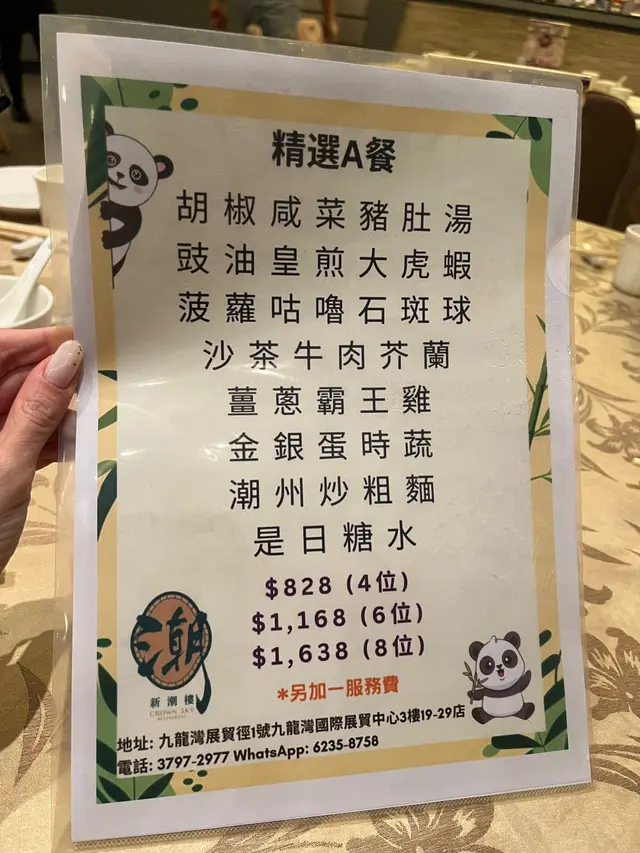 精選A餐
胡椒咸菜豬肚湯
豉油皇煎大虎蝦
菠蘿咕嚕石斑球
沙茶牛肉芥蘭
薑蔥霸王雞
金銀蛋時蔬
潮州炒粗麵
是日糖水
$828 (4位)
$1,168 (6位)
$1,638 (8位)
*另加一服務費
潮
新潮樓
CROWN SKY
地址: 九龍灣展貿徑1號九龍灣國際展貿中心3樓19-29店
電話: 3797-2977 WhatsApp: 6235-8758